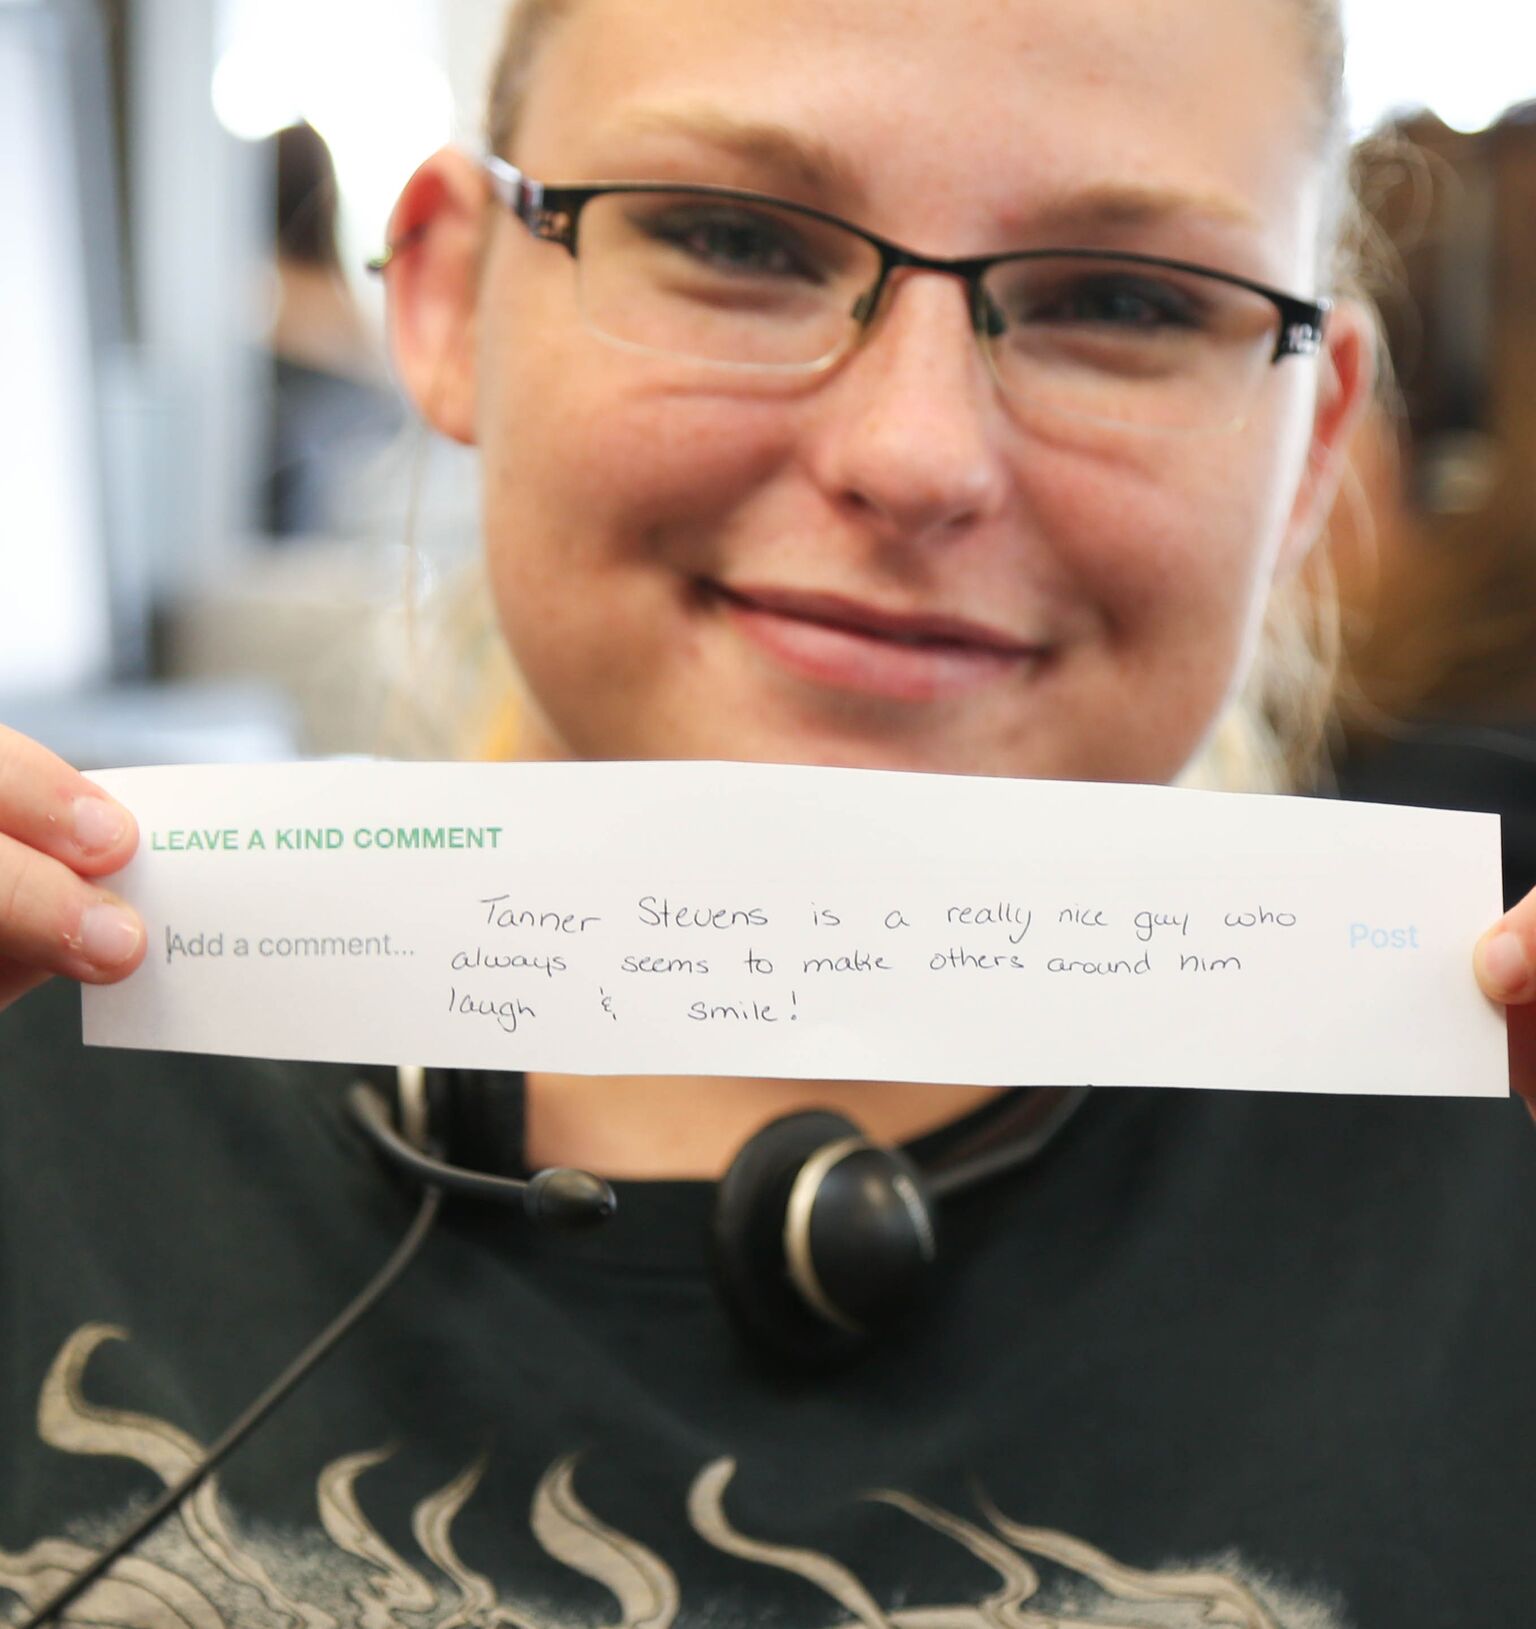 LEAVE A KIND COMMENT
Add a comment...
Tanner Stevens is a really nice guy who
always seems to make others around him
laugh & smile!
Post